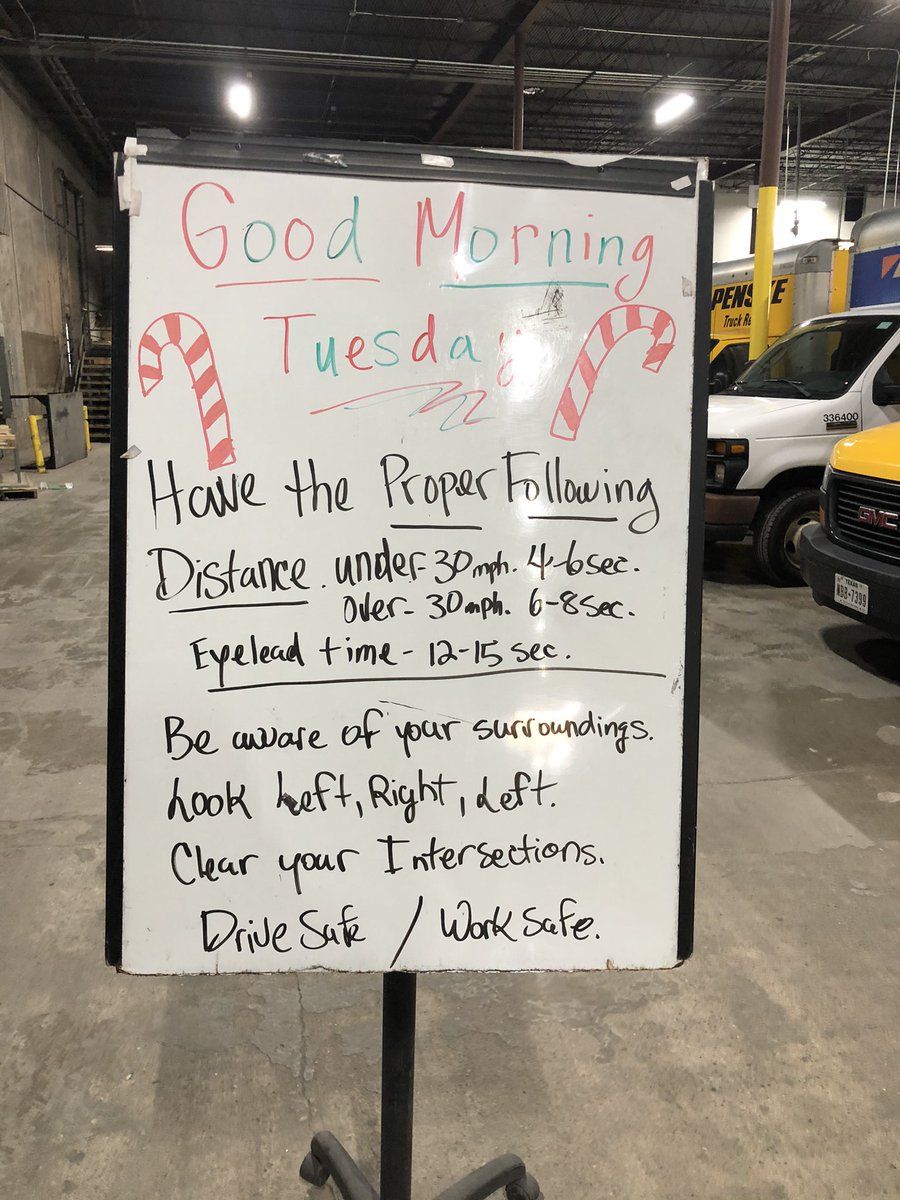 Good Morning
Tuesday
Have the Proper Following
Distance. under-30mph. 4-6sec.
over-30mph. 6-8sec.
Eyelead time-12-15 sec.
Be aware of your surroundings.
Look Left, Right, Left.
Clear your Intersections.
Drive Safe / Work Safe.
PENSKE
Truck Re
336400
GMC
TEXAS